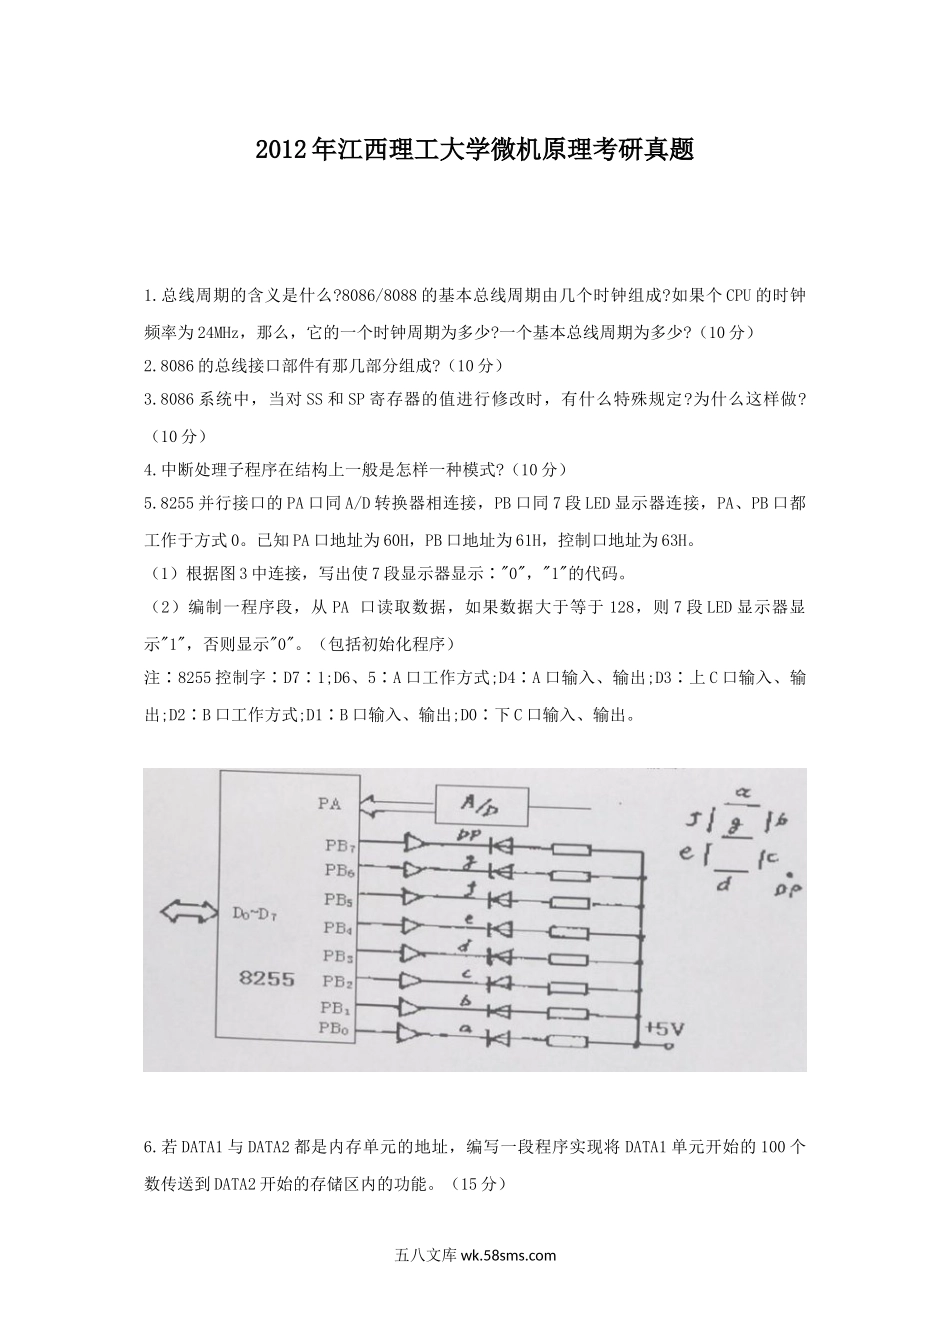 2012年江西理工大学微机原理考研真题
1.总线周期的含义是什么?8086/8088 的基本总线周期由几个时钟组成?如果个 CPU 的时钟
频率为 24MHz，那么，它的一个时钟周期为多少?一个基本总线周期为多少?（10 分）
2.8086 的总线接口部件有那几部分组成?（10 分）
3.8086 系统中，当对 SS 和 SP 寄存器的值进行修改时，有什么特殊规定?为什么这样做?
（10 分）
4.中断处理子程序在结构上一般是怎样一种模式?（10 分）
5.8255 并行接口的 PA 口同 A/D 转换器相连接，PB 口同 7 段 LED 显示器连接，PA、PB 口都
工作于方式 0。已知 PA 口地址为 60H，PB 口地址为 61H，控制口地址为 63H。
（1）根据图 3 中连接，写出使 7 段显示器显示："0"，"1"的代码。
（2）编制一程序段，从 PA 口读取数据，如果数据大于等于 128，则 7 段 LED 显示器显
示"1"，否则显示"0"。（包括初始化程序）
注：8255 控制字：D7：1;D6、5：A 口工作方式;D4：A 口输入、输出;D3：上 C 口输入、输
出;D2：B 口工作方式;D1：B 口输入、输出;D0：下 C 口输入、输出。
PA A/D
a
f g b
e c
d DP
PB7 DP
PB6 g
PB5 f
D0~D7
PB4 e
PB3 d
8255
PB2 c
PB1 b
PB0 a
+5V
6.若 DATA1 与 DATA2 都是内存单元的地址，编写一段程序实现将 DATA1 单元开始的 100 个
数传送到 DATA2 开始的存储区内的功能。（15 分）
五八文库 wk.58sms.com